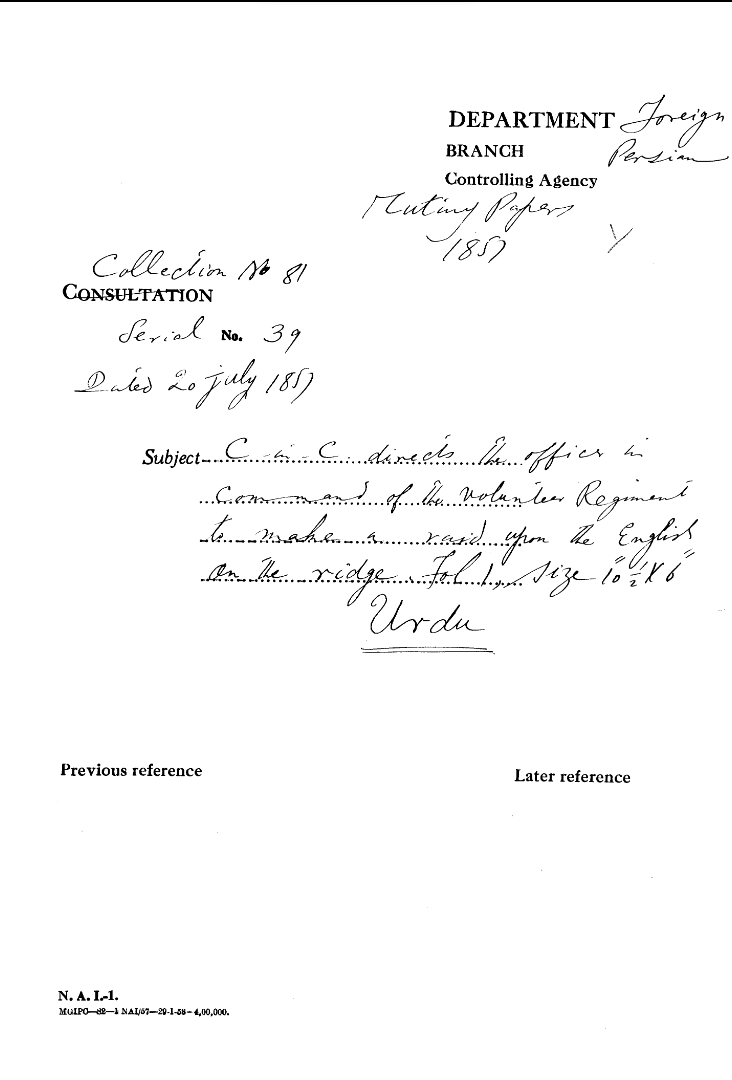 DEPARTMENT Foreign
BRANCH Persian
Controlling Agency
Mutiny Papers
1857
Collection No 81
CONSULTATION
Serial No. 39
Dated 20 July 1857
Subject C-in-C directs the officer in
Command of the volunteer Regiment
to make a raid upon the English
on the ridge. Fol 1, Size 10 1/2" X 6"
Urdu
Previous reference
Later reference
N. A. I.-1.
MGIPC—82—1 NAI/57—29-1-58—4,00,000.